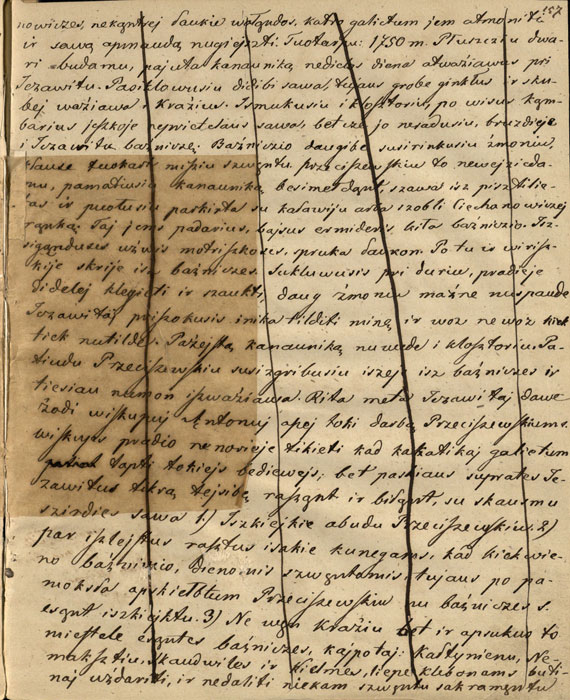 157
nowiczes, nekąntsej łaukie wałąndos, katro galietum jem atmoniti
ir sawą apmaudą nugiejżti. Tuotarpu: 1750 m. Pluszcziu dwa-
ri budamu, pajuta kanauniką nedielos diena atważiawus pri
Jezawitu. Pasiklowusiu didibi sawa, tujaus grobe ginklus ir sku-
bej ważiawa Kražius. Ismukusiu i kłosztoriu, po wisus kąm-
barius jeszkoje neprieteliaus sawa, bet cze jo neradusiu, bruzdieje
i Jezawitu bażniczę. Bażniczio daugibe susirinkusiu żmoniu,
klause tuokart misziu szwąntu. Przeciszewskiu to newejziedа-
nu, pamatiusiu kanauniką besimeldąnt szawa isz pisztalie-
tas ir puotusiu parkirta su kaławiju arba szobli Ciechanowiczej
ranką. Taj jems padarius, bajsus ermideris, buta bażniczio. Isz-
sigandusis użwis motriszkoses, spruka łaukon. Po tu ir wirisz-
kije skrije isz bażniczes. Sukluwusis pri duriu, pradieje
didelej klegieti ir szaukti, daug żmoniu mażne nuspaude
Jezawitaj priszokusis inika tilditi minę ir woz ne woz
tiek nutilde. Pażejstą kanauniką nuwede i kłosztoriu. Pa-
tiudu Przeciszewskiu susizgribusiu iszejе isz bażniczes ir
tiesiau numon iszważiawa. Rita meta Jezawitaj dawe
żodi wiskupuj Antonuj apej toki darbą Przeciszewskiums.
wiskups pradio nenorieje tikieti kad katalikaj galietum
tapti tokiejs bediewejs, bet paskiaus suprates Je-
zawitus tikrą tejsibę rasząnt ir biląnt, su skausmu
szirdies sawa 1.) Iszkiejkie abudu Przeciszewskiu. 2)
par iszlejstus rasztus iszkie kunegams, kad kiekwie-
no bażniczio, dienomis szwąntomis, tujaus po pa-
moksła apskielbtum Przeciszewskiu nu bażniczes s.
esąnt iszkiejktu. 3) Ne wen Kražiu bet ir apsukuo to
miestele esąntes bażniczes, kajpotaj: Kałtynienu, Ne-
maksztiu, Skaudwiles ir Kielmes, liepe klebonams buti-
naj użdariti, ir nedaliti niekam szwąntu sakramąntu